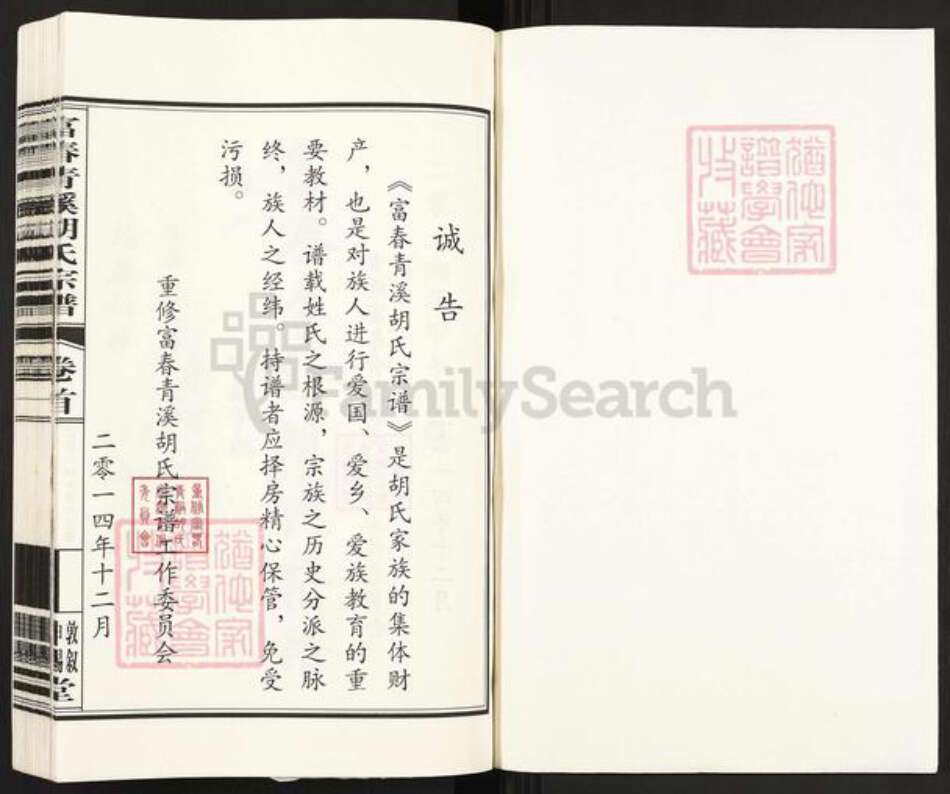 诚告
《富春青溪胡氏宗谱》是胡氏家族的集体财
产，也是对族人进行爱国、爱乡、爱族教育的重
要教材。谱载姓氏之根源，宗族之历史分派之脉
终，族人之经纬。持谱者应择房精心保管，免受
污损。
重修富春青溪胡氏宗谱工作委员会
二零一四年十二月
富春青溪胡氏宗谱
卷首
敦叙
堂
猶他家
譜學會
收藏
FamilySearch